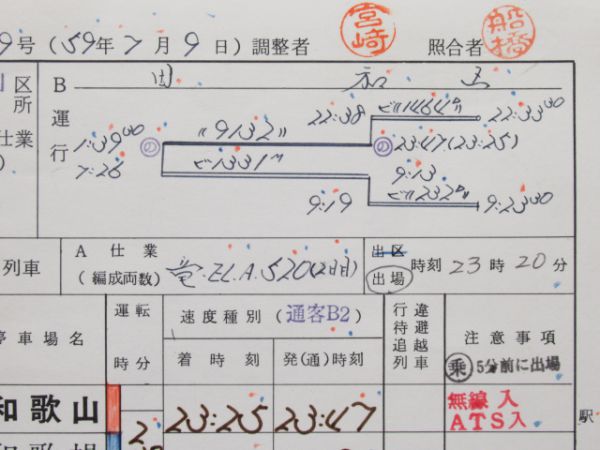 9号 (59年7月9日) 調整者 宮崎 照合者 船橋
区 B 田 和 五
所 運
仕業 行
22:38 1464 22:33 30
1:39 00 の 9132 の 23:47 (23:25)
7:26 1331 9:13
9:19 232 9:23 30
列車 A 仕業 (編成両数) 竜.EL.A.520(2日目) 出区 出場 時刻 23時20分
停車場名 運転時分 速度種別 (通客B2) 行違待避追越列車 注意事項
着時刻 発(通)時刻 乗 5分前に出場
和歌山 23:25 23:47 無線入
2 ATS入 駅